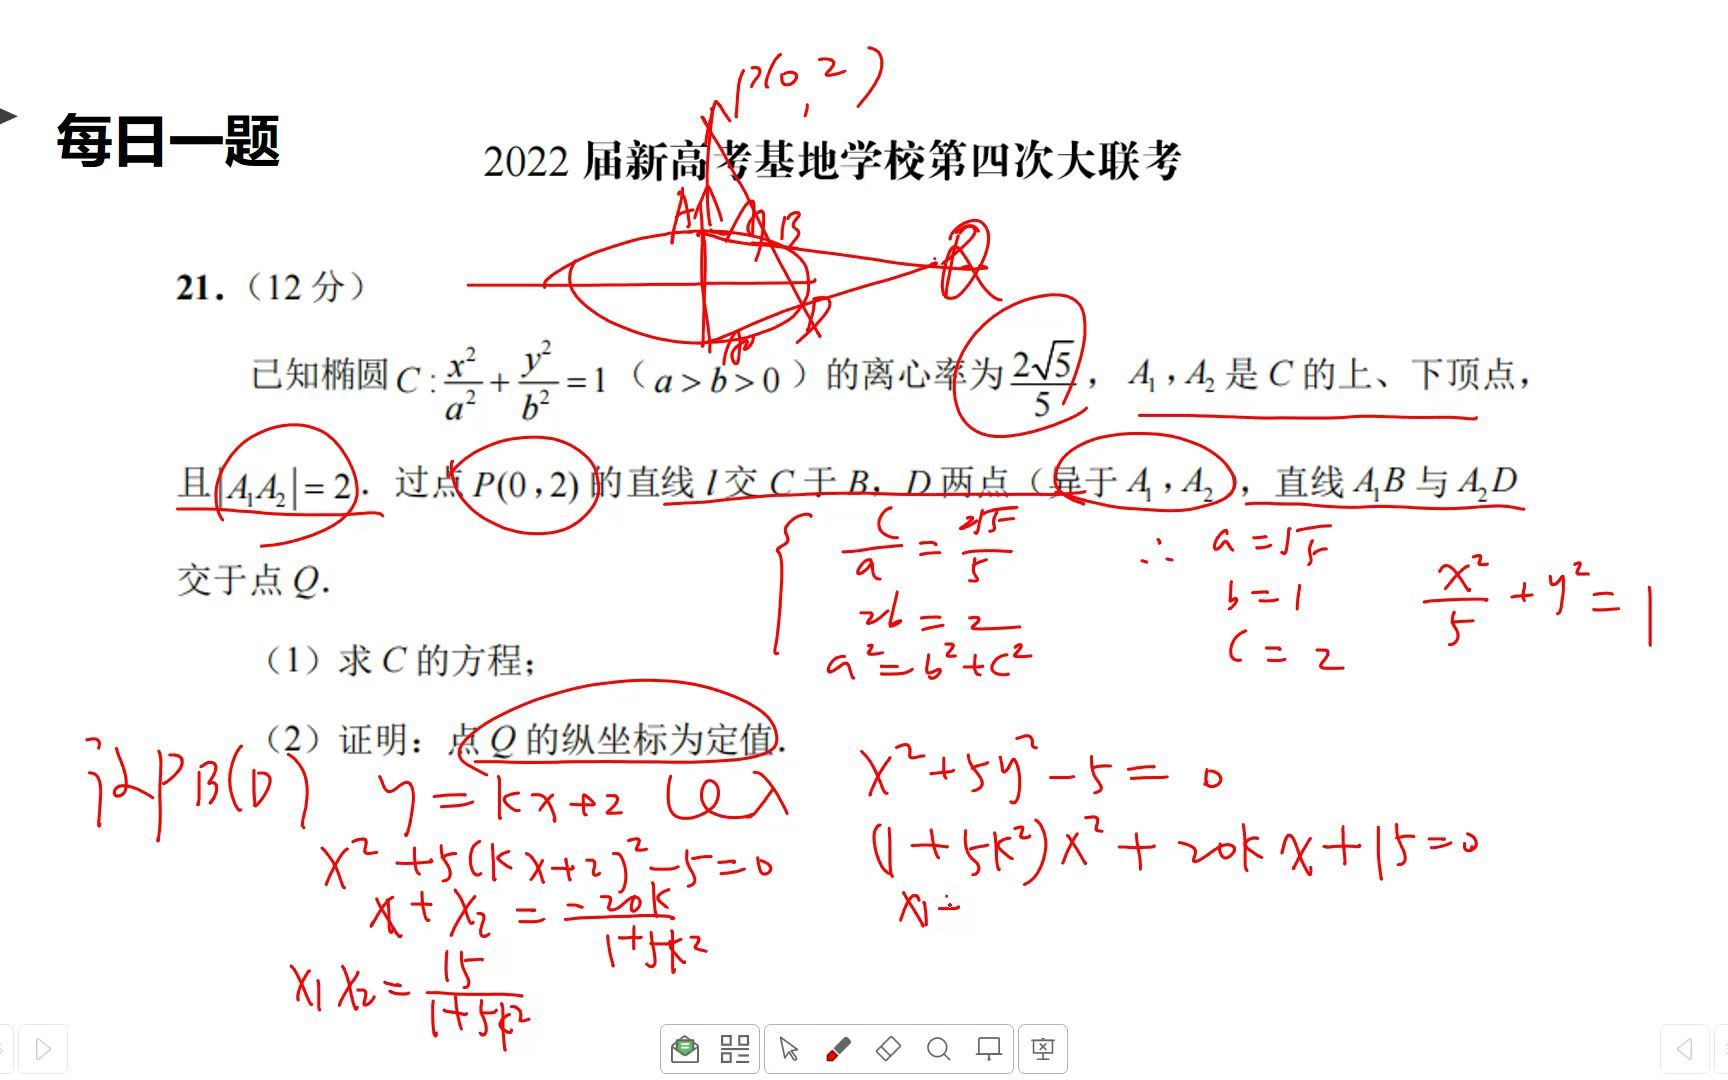 P(0,2)
每日一题
2022 届新高考基地学校第四次大联考
A₁
B
Q
D
21.（12 分）
已知椭圆 C : x²/a² + y²/b² = 1（a > b > 0）的离心率为 2√5/5，A₁，A₂ 是 C 的上、下顶点，
且|A₁A₂| = 2．过点 P(0,2) 的直线 l 交 C 于 B，D 两点（异于 A₁，A₂），直线 A₁B 与 A₂D
交于点 Q．
c/a = 2√5/5
2b = 2
a² = b² + c²
∴ a = √5
b = 1
c = 2
x²/5 + y² = 1
（1）求 C 的方程；
（2）证明：点 Q 的纵坐标为定值．
设 PB(D) y = kx + 2 代入
x² + 5y² − 5 = 0
x² + 5(kx + 2)² − 5 = 0
(1 + 5k²)x² + 20kx + 15 = 0
x₁ + x₂ = −20k/1+5k²
x₁ =
x₁x₂ = 15/1+5k²